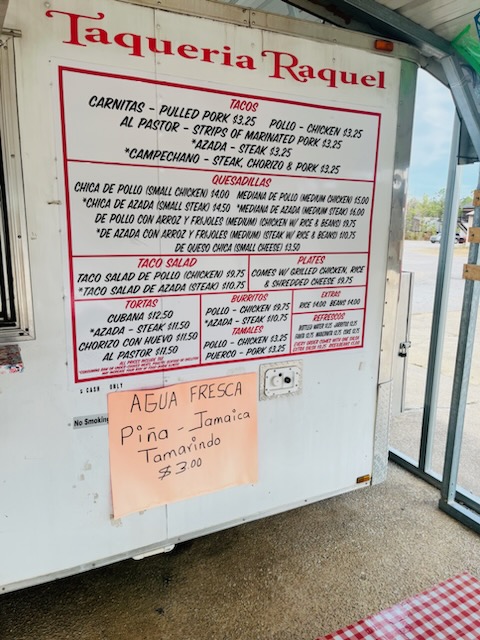 Taqueria Raquel
TACOS
CARNITAS - PULLED PORK $3.25 POLLO - CHICKEN $3.25
AL PASTOR - STRIPS OF MARINATED PORK $3.25
*AZADA - STEAK $3.25
*CAMPECHANO - STEAK, CHORIZO & PORK $3.25
QUESADILLAS
CHICA DE POLLO (SMALL CHICKEN) $4.00 MEDIANA DE POLLO (MEDIUM CHICKEN) $5.00
*CHICA DE AZADA (SMALL STEAK) $4.50 *MEDIANA DE AZADA (MEDIUM STEAK) $6.00
DE POLLO CON ARROZ Y FRIJOLES (MEDIUM) (CHICKEN W/ RICE & BEANS) $9.75
*DE AZADA CON ARROZ Y FRIJOLES (MEDIUM) (STEAK W/ RICE & BEANS) $10.75
DE QUESO CHICA (SMALL CHEESE) $3.50
TACO SALAD
TACO SALAD DE POLLO (CHICKEN) $9.75
*TACO SALAD DE AZADA (STEAK) $10.75
PLATES
COMES W/ GRILLED CHICKEN, RICE
& SHREDDED CHEESE $9.75
TORTAS
CUBANA $12.50
*AZADA - STEAK $11.50
CHORIZO CON HUEVO $11.50
AL PASTOR $11.50
ALL PRICES INCLUDE TAX
BURRITOS
POLLO - CHICKEN $9.75
*AZADA - STEAK $10.75
TAMALES
POLLO - CHICKEN $3.25
PUERCO - PORK $3.25
EXTRAS
RICE $4.00 BEANS $4.00
REFRESCOS
EVERY ORDER COMES WITH ONE SALSA
CASH ONLY
No Smoking
AGUA FRESCA
Piña - Jamaica
Tamarindo
$3.00